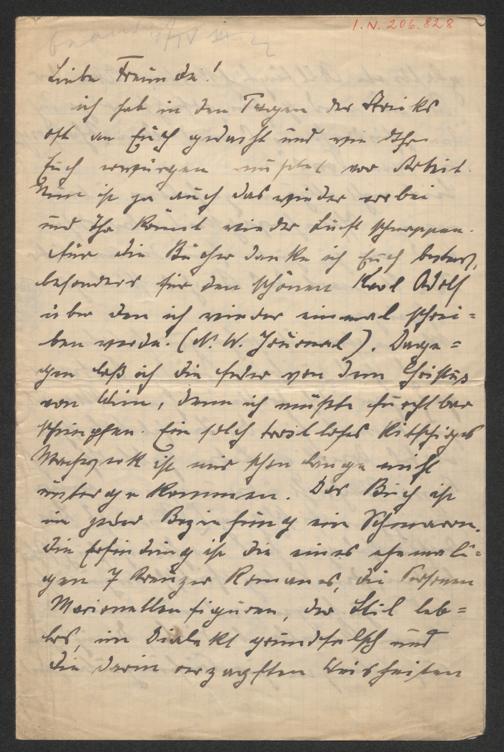 I. N. 206.828
Liebe Freunde!
ich hab in den Tagen der Streiks
oft an Euch gedacht und wie Ihr
Euch erwürgen müsstet vor Arbeit.
Nun ist ja auch das wieder vorbei
und Ihr könnt wieder Luft schnappen.
Für die Bücher danke ich Euch bestens,
besonders für den schönen Karl Adolf
über den ich wieder einmal schrei=
ben werde. (N. W. Journal). Dage=
gen laß ich die Feder von dem Christus
von Wien, denn ich müßte furchtbar
schimpfen. Ein solch trostloses kitschiges
Machwerk ist mir schon lange nicht
untergekommen. Das Buch ist
in jeder Beziehung ein Schmarrn.
Die Erfindung ist die eines ehemali=
gen 7 Kreuzer Romanes, die Personen
Marionettenfiguren, der Stil leb=
los, im Dialekt grundfalsch und
die darin verzapften Weisheiten